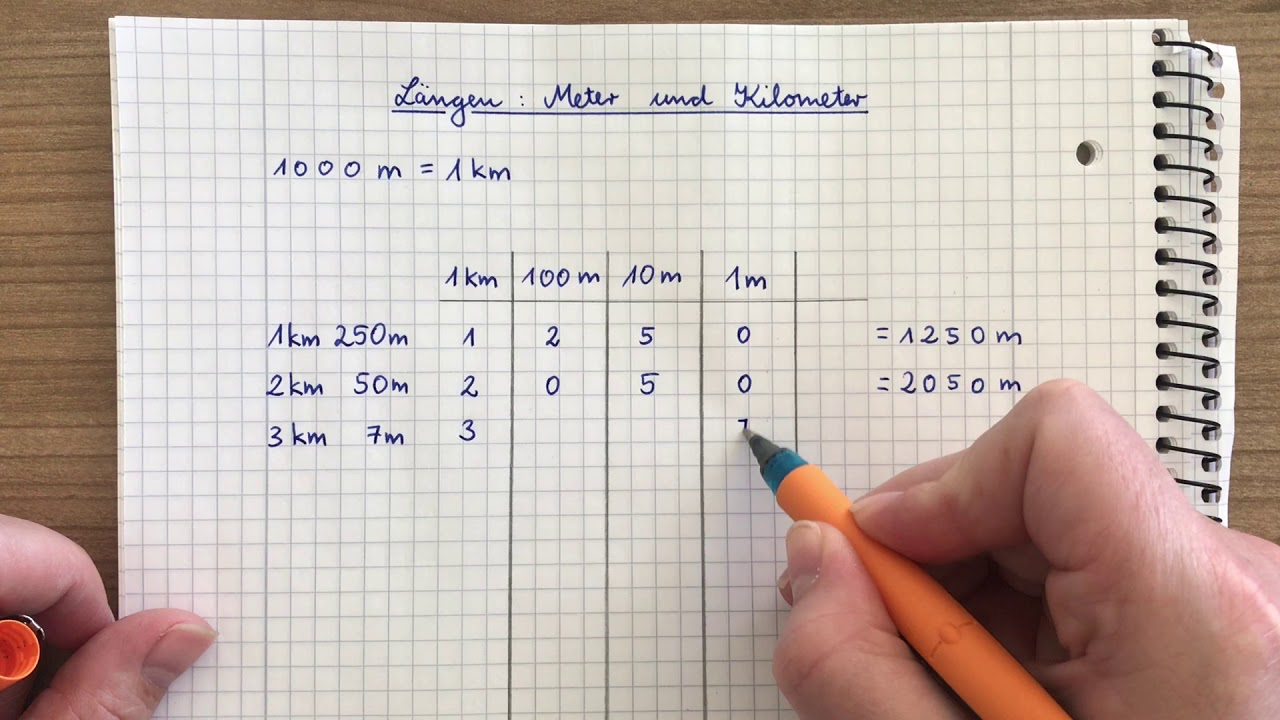 Längen: Meter und Kilometer
1000 m = 1 km
1km 100m 10m 1m
1km 250m 1 2 5 0 = 1250 m
2km 50m 2 0 5 0 = 2050 m
3 km 7m 3